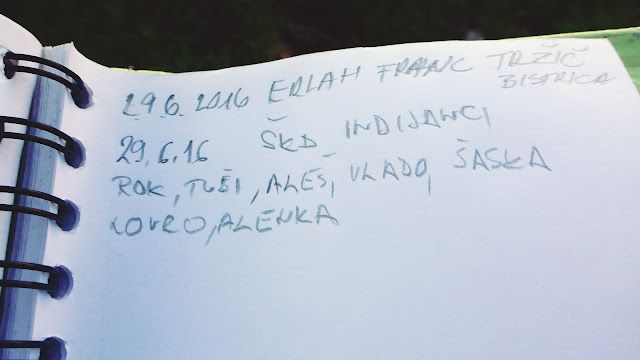 29.6.2016 ERLAH FRANC TRŽIČ
BISTRICA
29.6.16 ŠKD INDIJANCI
ROK, TUŠI, ALEŠ, VLADO, ŠASKA
LOVRO, ALENKA